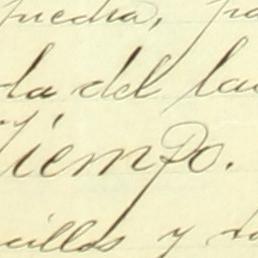 piedra, pa
ta del la
Tiempo.
cillos y